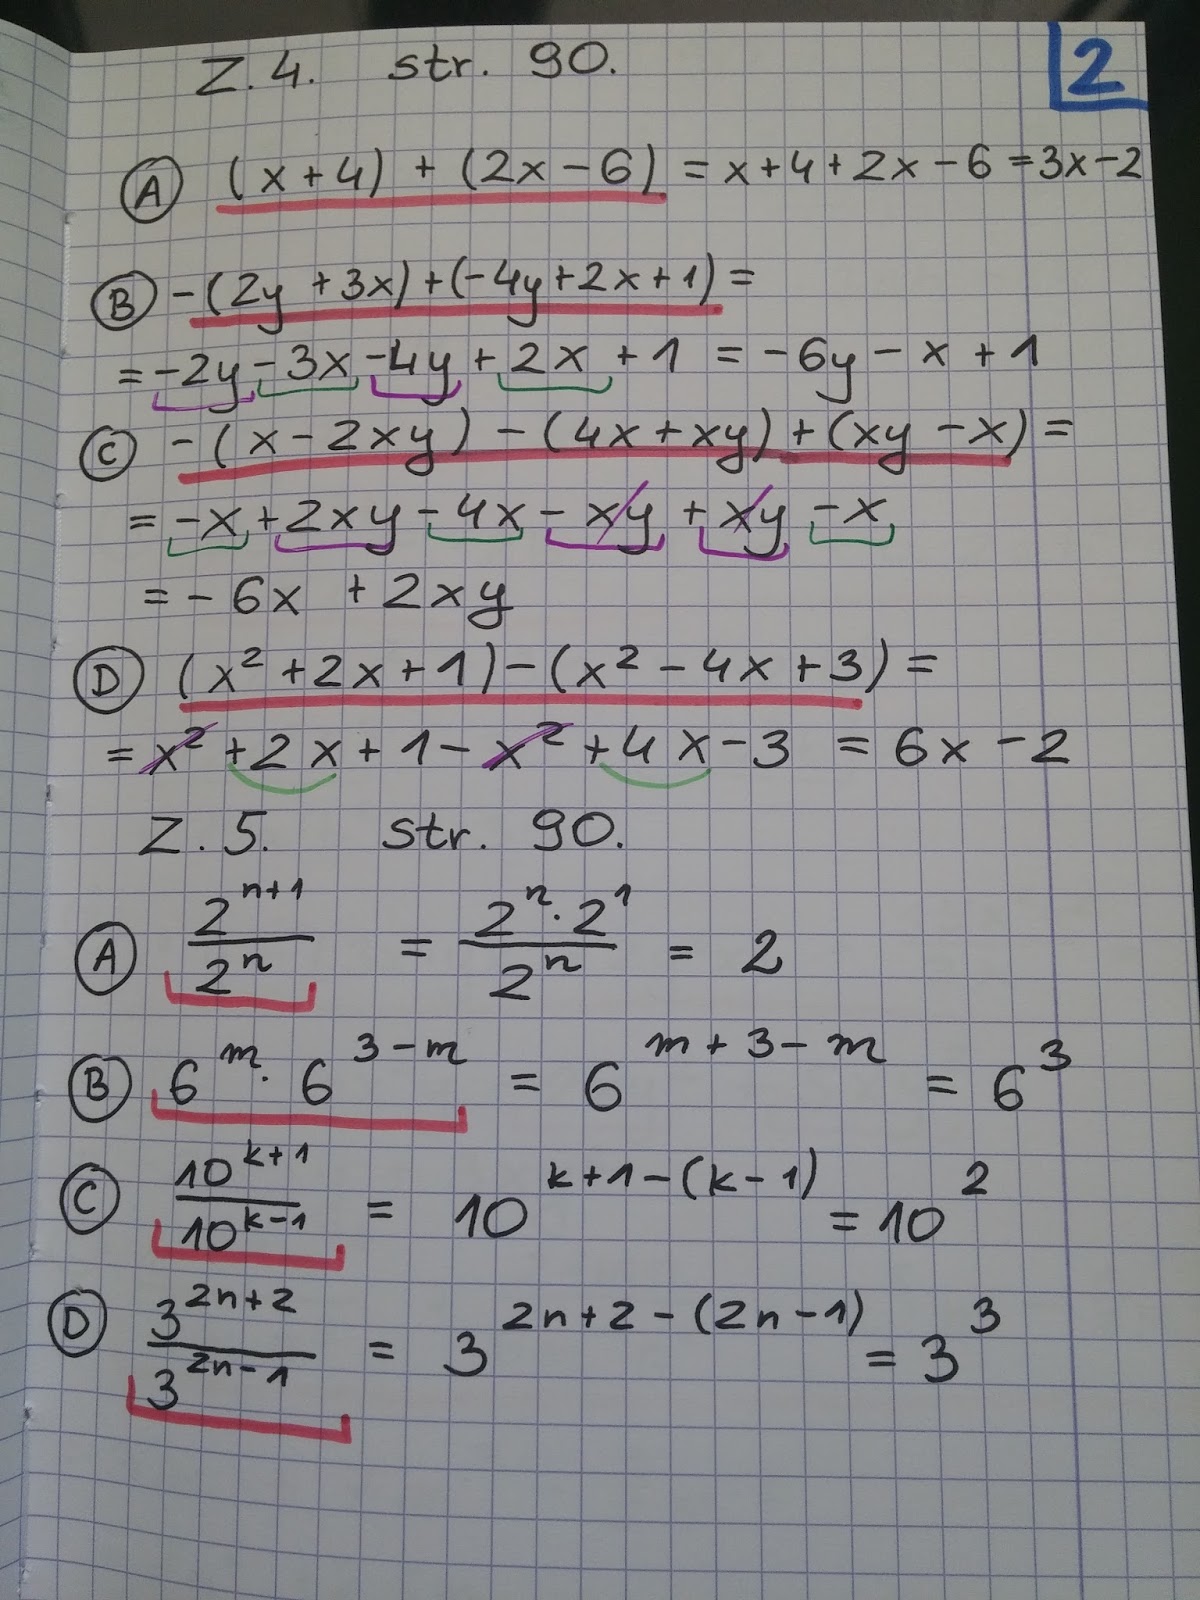 Z.4. str. 90.
2
A (x+4) + (2x-6) = x+4+2x-6 =3x-2
B -(2y+3x)+(-4y+2x+1) =
= -2y-3x-4y+2x+1 = -6y-x+1
C -(x-2xy) -(4x+xy)+(xy-x) =
= -x+2xy-4x-xy+xy-x
= -6x +2xy
D (x²+2x+1)-(x²-4x+3) =
= x²+2x+1-x²+4x-3 = 6x-2
Z.5. str. 90.
A 2^{n+1}/2^n = 2^n·2^1/2^n = 2
B 6^m·6^{3-m} = 6^{m+3-m} = 6^3
C 10^{k+1}/10^{k-1} = 10^{k+1-(k-1)} = 10^2
D 3^{2n+2}/3^{2n-1} = 3^{2n+2-(2n-1)} = 3^3